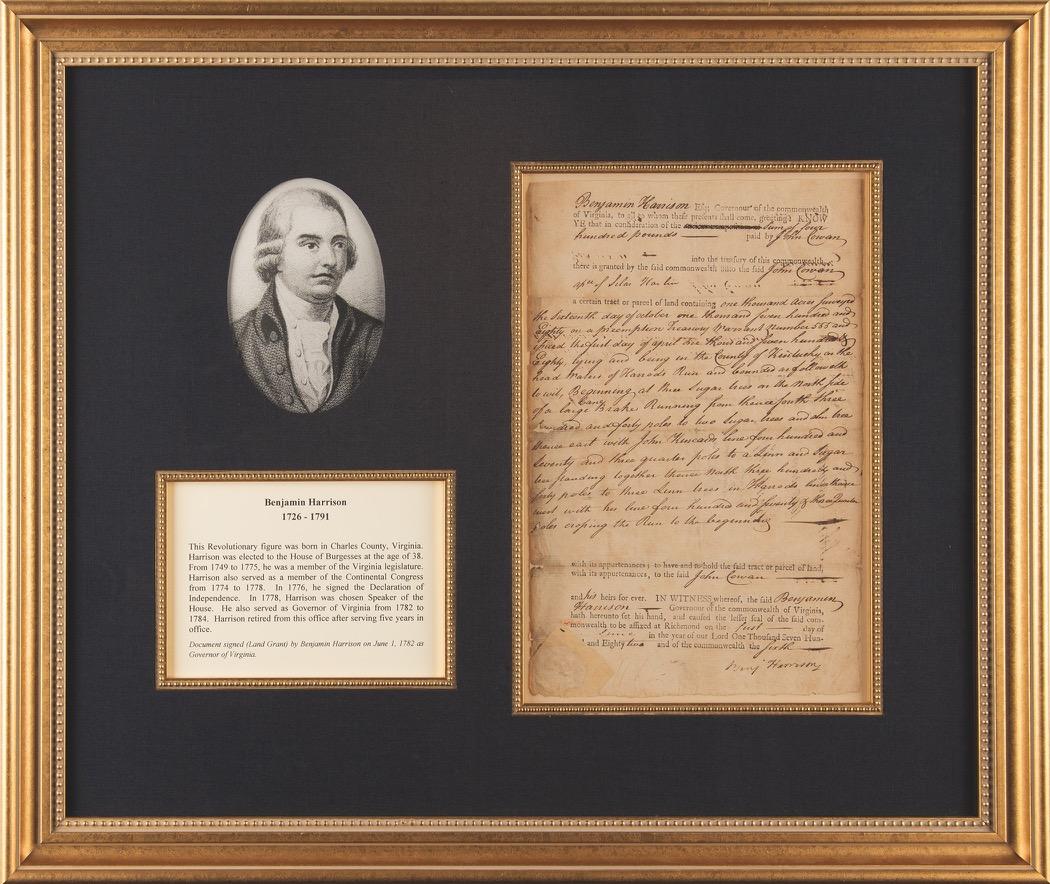 Benjamin Harrison
1726 - 1791
This Revolutionary figure was born in Charles County, Virginia.
Harrison was elected to the House of Burgesses at the age of 38.
From 1749 to 1775, he was a member of the Virginia legislature.
Harrison also served as a member of the Continental Congress
from 1774 to 1778. In 1776, he signed the Declaration of
Independence. In 1778, Harrison was chosen Speaker of the
House. He also served as Governor of Virginia from 1782 to
1784. Harrison retired from this office after serving five years in
office.
Document signed (Land Grant) by Benjamin Harrison on June 1, 1782 as
Governor of Virginia.
Benjamin Harrison Esq; Governour of the commonwealth
of Virginia, to all to whom these presents shall come, greeting: KNOW
YE that in consideration of the Sum of four
hundred pounds paid by John Cowan
into the treasury of this commonwealth,
there is granted by the said commonwealth unto the said John Cowan
of Silas Harlin
a certain tract or parcel of land containing one thousand Acres Surveyed
the Sixteenth day of october one thousand Seven hundred and
Eighty, on a preemption Treasury Warrant Number 555 and
the first day of april one thousand Seven hundred &
Eighty, lying and being in the County of Kentucky on the
head Waters of Harrods Run and bounded as followeth
to wit, Beginning at three Sugar trees on the North side
of a large Cany Brake Running from thence North three
hundred and forty poles to two Sugar trees and elm tree
thence east with John Kincards line four hundred and
Seventy and three quarter poles to a Linn and Sugar
tree standing together thence North three hundred and
forty poles to three Linn trees in Harrods line thence
west with his line four hundred and Seventy & three Quarter
poles crossing the Run to the beginning
with its appurtenances; to have and to hold the said tract or parcel of land,
with its appurtenances, to the said John Cowan
and his heirs for ever. IN WITNESS whereof, the said Benjamin
Harrison Governour of the commonwealth of Virginia,
hath hereunto set his hand, and caused the lesser seal of the said com-
monwealth to be affixed at Richmond on the first day of
June in the year of our Lord One Thousand Seven Hun-
and Eighty two and of the commonwealth the sixth
Benj Harrison